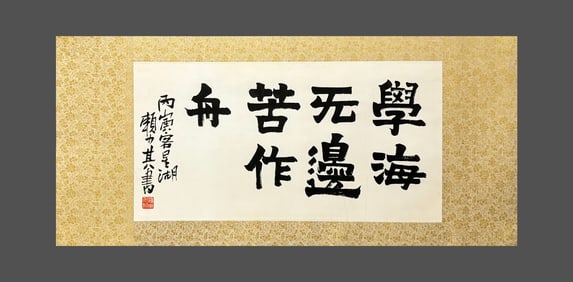 學海
无邊
苦作
舟
丙寅客星湖
賴少其書